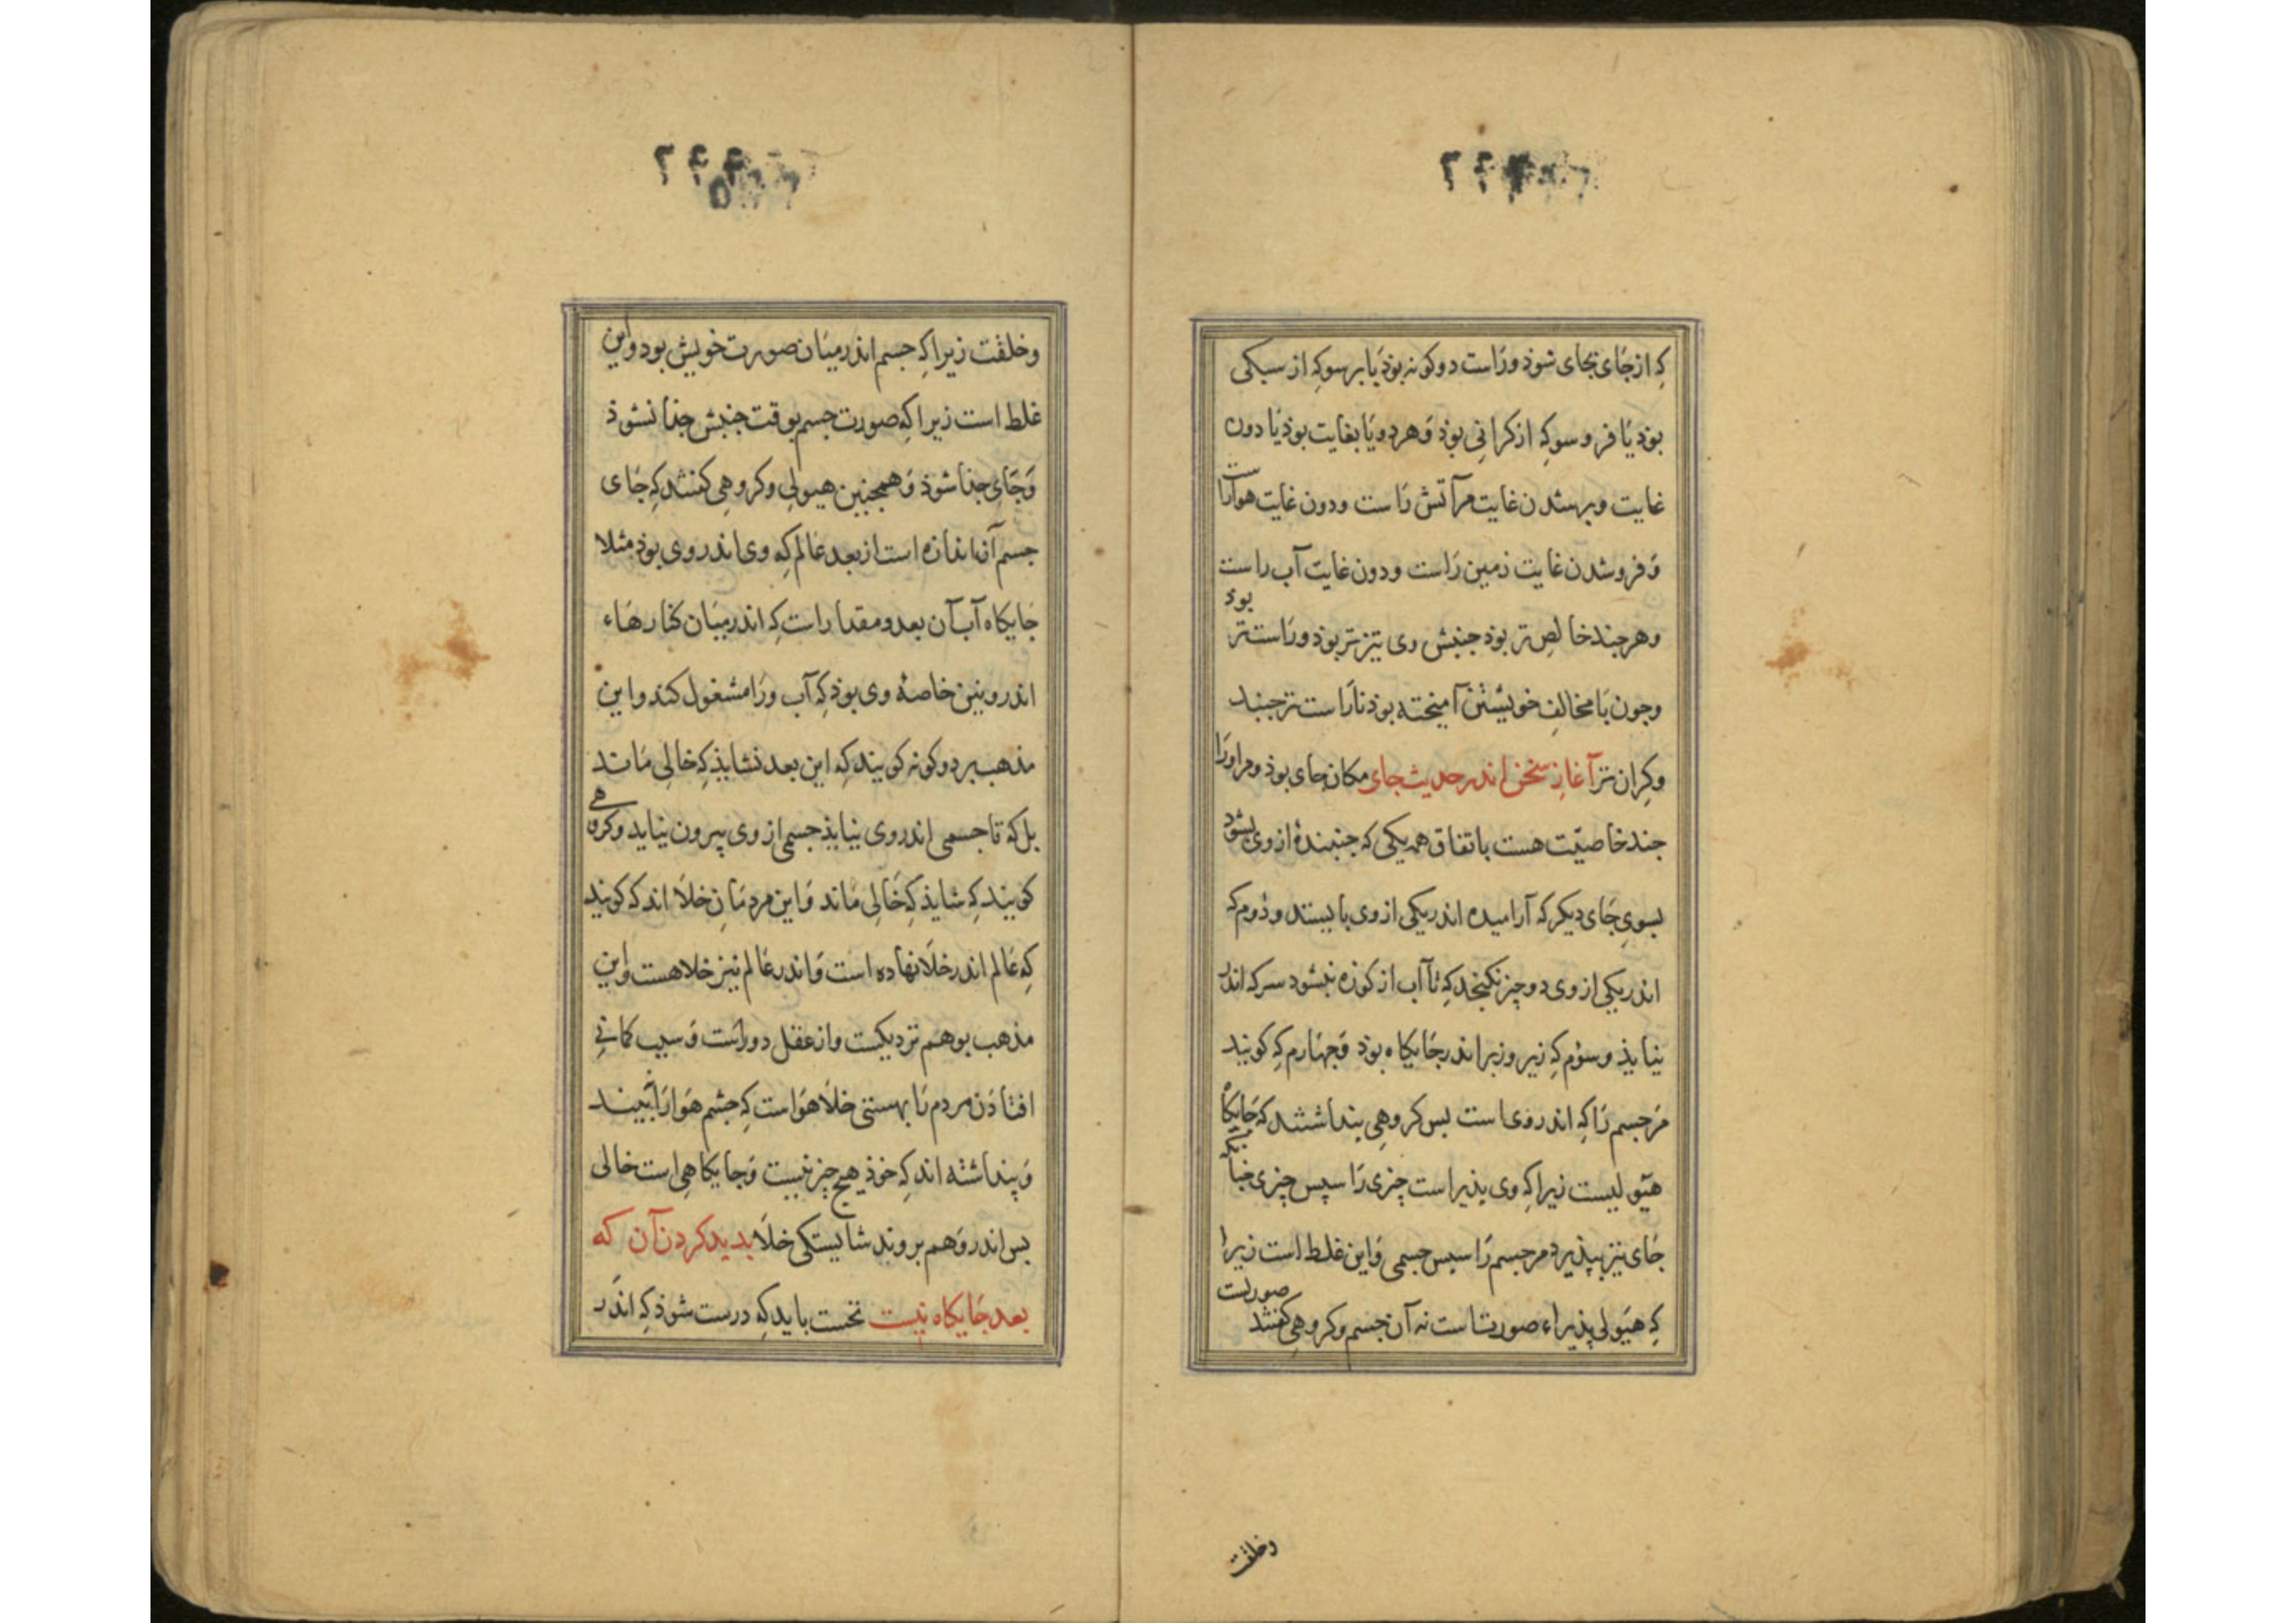 که از جای بجای شوذ و راست دو کونه بوذ یا بر سو که از سبکی
بوذ یا فرو سو که از کرانی بوذ و هر دو یا بغایت بوذ یا دون
غایت و برشدن غایت مر آتش راست و دون غایت هوا راست
و فرو شدن غایت زمین راست و دون غایت آب راست
و هر چند خالص تر بوذ جنبش وی تیزتر بوذ و راست تر بود
و چون با مخالف خویشتن آمیخته بوذ ناراست تر جنبد
و کران تر آغاز سخن اندر حدیث جای مکان جای بوذ و مر او را
چند خاصیت هست باتفاق همه یکی که جنبنده از وی بشود
بسوی جای دیکر که آرامیده اندر یکی از وی با بیستد و دوم که
اندر یکی از وی دو چیز نکنجد که تا آب از کوزه نشود سرکه اندر
نیایذ و سوم که زیر و زبر اندر جایکاه بوذ و چهارم که کویند
مر جسم را که اندر وی است بس کروهی بنداشتند که جایکاه
هیولیست زیرا که وی پذیراست چیزی را سپس چیزی چنانکه
جای نیز بپذیرد مر جسم را سپس جسمی و این غلط است زیرا
که هیولی پذیراء صورتست نه آن جسم و کروهی کفتند صورتست
وخلقت
۲۴۴
وخلقت زیرا که جسم اندر میان صورت خویش بود و این
غلط است زیرا که صورت جسم بوقت جنبش جذا نشوذ
و جای جذا شوذ و همچنین هیولی و کروهی کفتند که جای
جسم آن اندازه است از بعد عالم که وی اندر وی بوذ مثلا
جایکاه آب آن بعد و مقدار است که اندر میان کنارهاء
اندرونین خاصهٔ وی بوذ که آب ورا مشغول کند و این
مذهب بر دو کونه کویند که این بعد نشایذ که خالی ماند
بل که تا جسمی اندر وی نیایذ جسمی از وی بیرون نیاید و کروهی
کویند که شایذ که خالی ماند و این مردمان خلا اند که کویند
که عالم اندر خلا نهاده است و اندر عالم نیز خلا هست و این
مذهب بوهم نزدیکست و از عقل دور است و سبب کمانی
افتاذن مردم را بهستی خلا هوا است که چشم هوا را نبیند
و پنداشته اند که خوذ هیچ چیز نیست و جایکاهی است خالی
بس اندر وهم بروند شایستکی خلا بدید کردن آن که
بعد جایکاه نیست نخست باید که درست شوذ که اندر